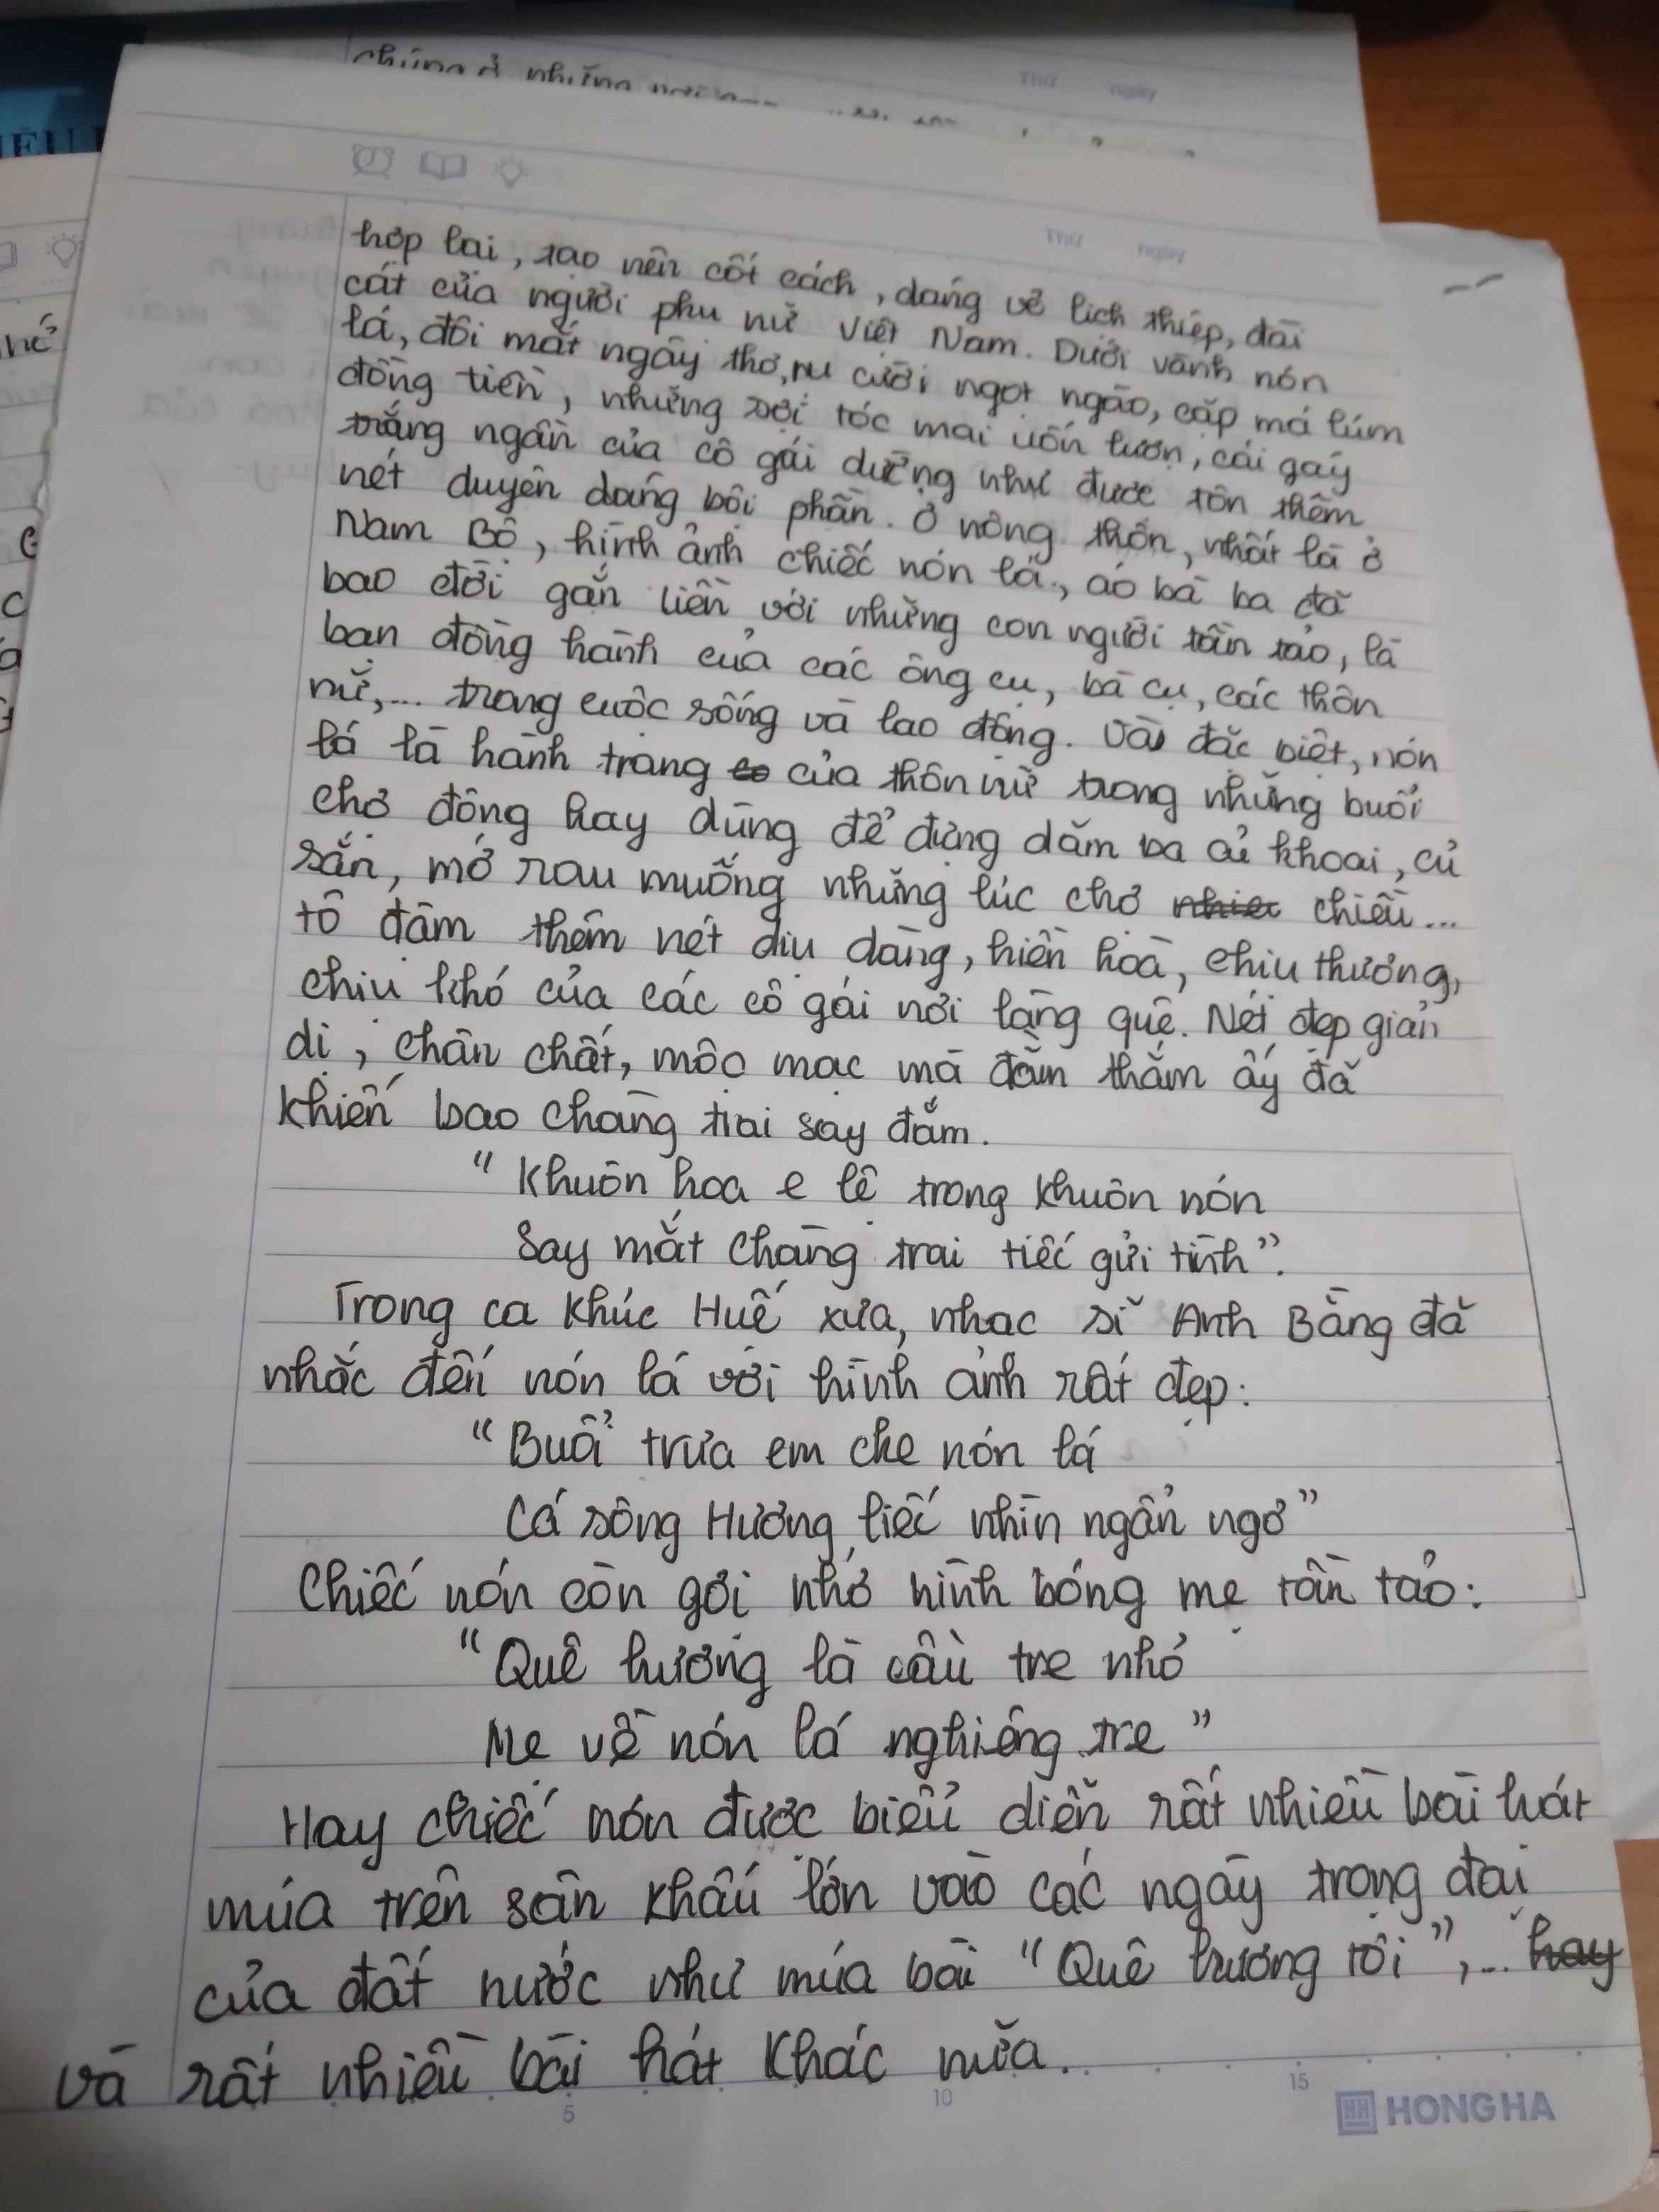 Thứ ngày
IỆU
Thứ ngày
hợp lại, tạo nên cốt cách, dáng vẻ lịch thiệp, đài
cát của người phụ nữ Việt Nam. Dưới vành nón
lá, đôi mắt ngây thơ, nụ cười ngọt ngào, cặp má lúm
đồng tiền, những sợi tóc mai uốn lượn, cái gáy
trắng ngần của cô gái dường như được tôn thêm
nét duyên dáng bội phần. Ở nông thôn, nhất là ở
Nam Bộ, hình ảnh chiếc nón lá, áo bà ba đã
bao đời gắn liền với những con người tần tảo, là
bạn đồng hành của các ông cụ, bà cụ, các thôn
nữ,... trong cuộc sống và lao động. Và đặc biệt, nón
lá là hành trang co của thôn nữ trong những buổi
chợ đông hay dùng để đựng dăm ba củ khoai, củ
sắn, mớ rau muống những lúc chợ nhiec chiều...
tô đậm thêm nét dịu dàng, hiền hoà, chịu thương,
chịu khó của các cô gái nơi làng quê. Nét đẹp giản
dị, chân chất, mộc mạc mà đằm thắm ấy đã
khiến bao chàng trai say đắm.
" Khuôn hoa e lệ trong khuôn nón
Say mắt chàng trai tiếc gửi tình".
Trong ca khúc Huế xưa, nhạc sĩ Anh Bằng đã
nhắc đến nón lá với hình ảnh rất đẹp:
"Buổi trưa em che nón lá
Cá sông Hương liếc nhìn ngẩn ngơ"
Chiếc nón còn gợi nhớ hình bóng mẹ tần tảo:
"Quê hương là cầu tre nhỏ
Mẹ về nón lá nghiêng tre"
Hay chiếc nón được biểu diễn rất nhiều bài hát
múa trên sân khấu lớn vào các ngày trọng đại
của đất nước như múa bài "Quê hương tôi",... hay
và rất nhiều bài hát khác nữa.
5 10 15
HONG HA